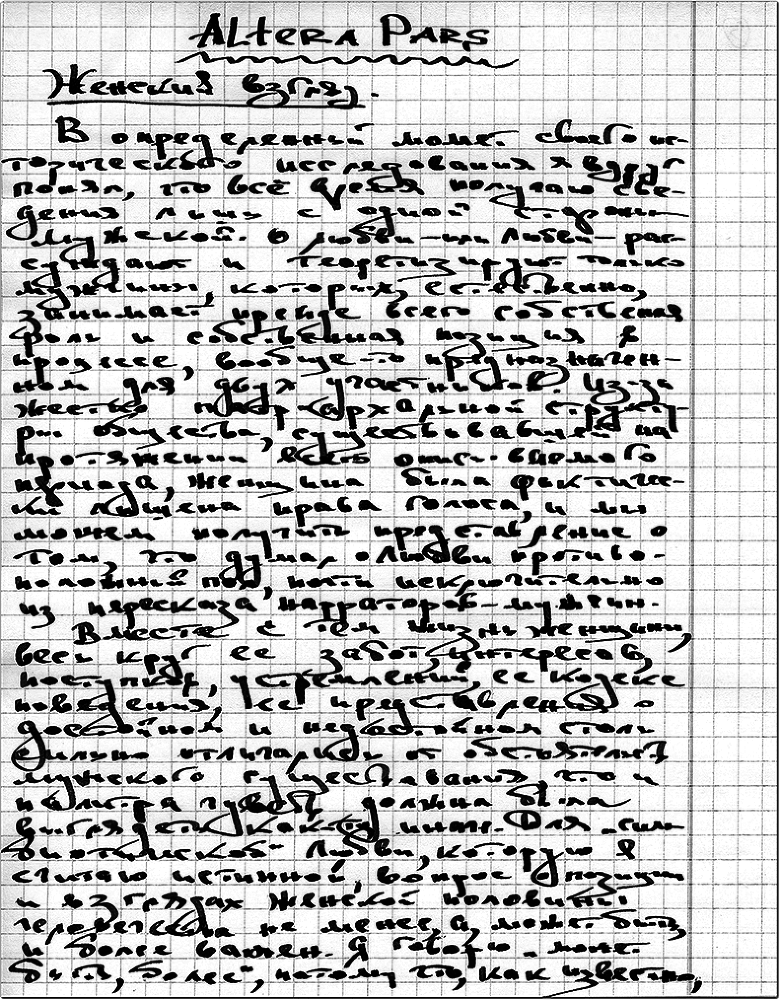 Altera Pars
Женский взгляд.
В определенный момент своего ис-
торического исследования я вдруг
понял, что всё время получаю све-
дения лишь с одной стороны –
мужской. О любви – или Любви – рас-
суждают и теоретизируют только
мужчины, которых, естественно,
занимает прежде всего собственная
роль и собственная позиция в
процессе, вообще-то предназначен-
ном для двух участников. Из-за
жестко патриархальной структу-
ры общества, существовавшей на
протяжении всего описываемого
периода, женщина была фактичес-
ки лишена права голоса, и мы
можем получить представление о
том, что думал о Любви противо-
положный пол, почти исключительно
из пересказа нарраторов-мужчин.
Вместе с тем жизнь женщины,
весь круг ее забот, интересов,
поступков, устремлений, ее кодекс
поведения, ее представления о
достойном и недостойном столь
сильно отличались от обстоятельств
мужского существования, что и
палитра чувств должна была
выглядеть как-то иначе. Для „сим-
биотической“ Любви, которую я
считаю истинной, вопрос о позиции
и взглядах женской половины
человечества не менее, а, может быть,
и более важен. Я говорю „может
быть, более“, потому что, как известно,